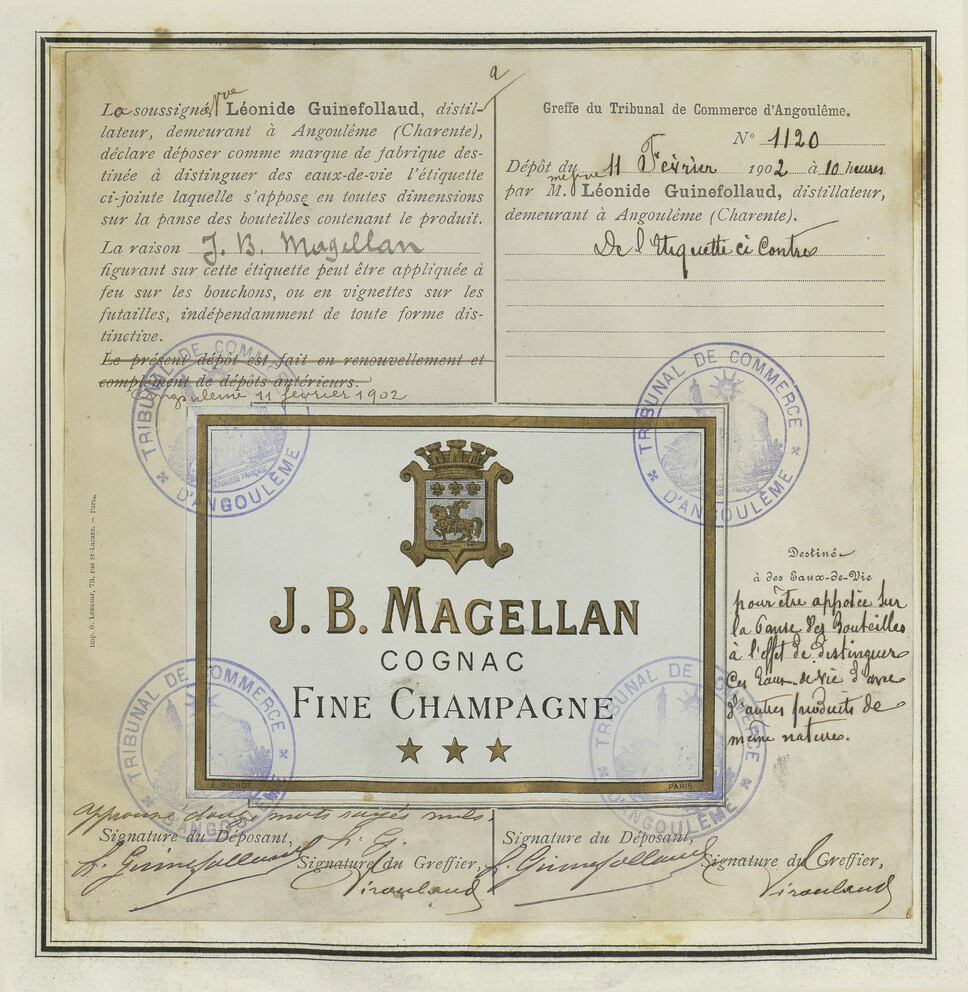 a
La soussignée Vve Léonide Guinefollaud, distil-
lateur, demeurant à Angoulême (Charente),
déclare déposer comme marque de fabrique des-
tinée à distinguer des eaux-de-vie l'étiquette
ci-jointe laquelle s'appose en toutes dimensions
sur la panse des bouteilles contenant le produit.
La raison J. B. Magellan
figurant sur cette étiquette peut être appliquée à
feu sur les bouchons, ou en vignettes sur les
futailles, indépendamment de toute forme dis-
tinctive.
Le présent dépôt est fait en renouvellement et
complément de dépôts antérieurs.
Angoulême 11 février 1902
Greffe du Tribunal de Commerce d'Angoulême.
N° 1120
Dépôt du 11 Février 1902 à 10 heures
par Mme Vve Léonide Guinefollaud, distillateur,
demeurant à Angoulême (Charente).
De l'Etiquette ci Contre
TRIBUNAL DE COMMERCE
D'ANGOULÊME
TRIBUNAL DE COMMERCE
D'ANGOULÊME
Imp. G. Lesueur, 73, rue St-Lazare. — Paris.
J. B. MAGELLAN
COGNAC
FINE CHAMPAGNE
E. PICHOT
PARIS
Destiné
à des Eaux-de-Vie
pour être apposée sur
la Panse des Bouteilles
à l'effet de distinguer
Ces Eaux-de-Vie d'avec
d'autres produits de
même nature.
TRIBUNAL DE COMMERCE
D'ANGOULÊME
TRIBUNAL DE COMMERCE
D'ANGOULÊME
Approuvé douze mots rayés nuls.
L. G.
Signature du Déposant,
L. Guinefollaud
Signature du Greffier,
Signature du Déposant,
L. Guinefollaud
Signature du Greffier,